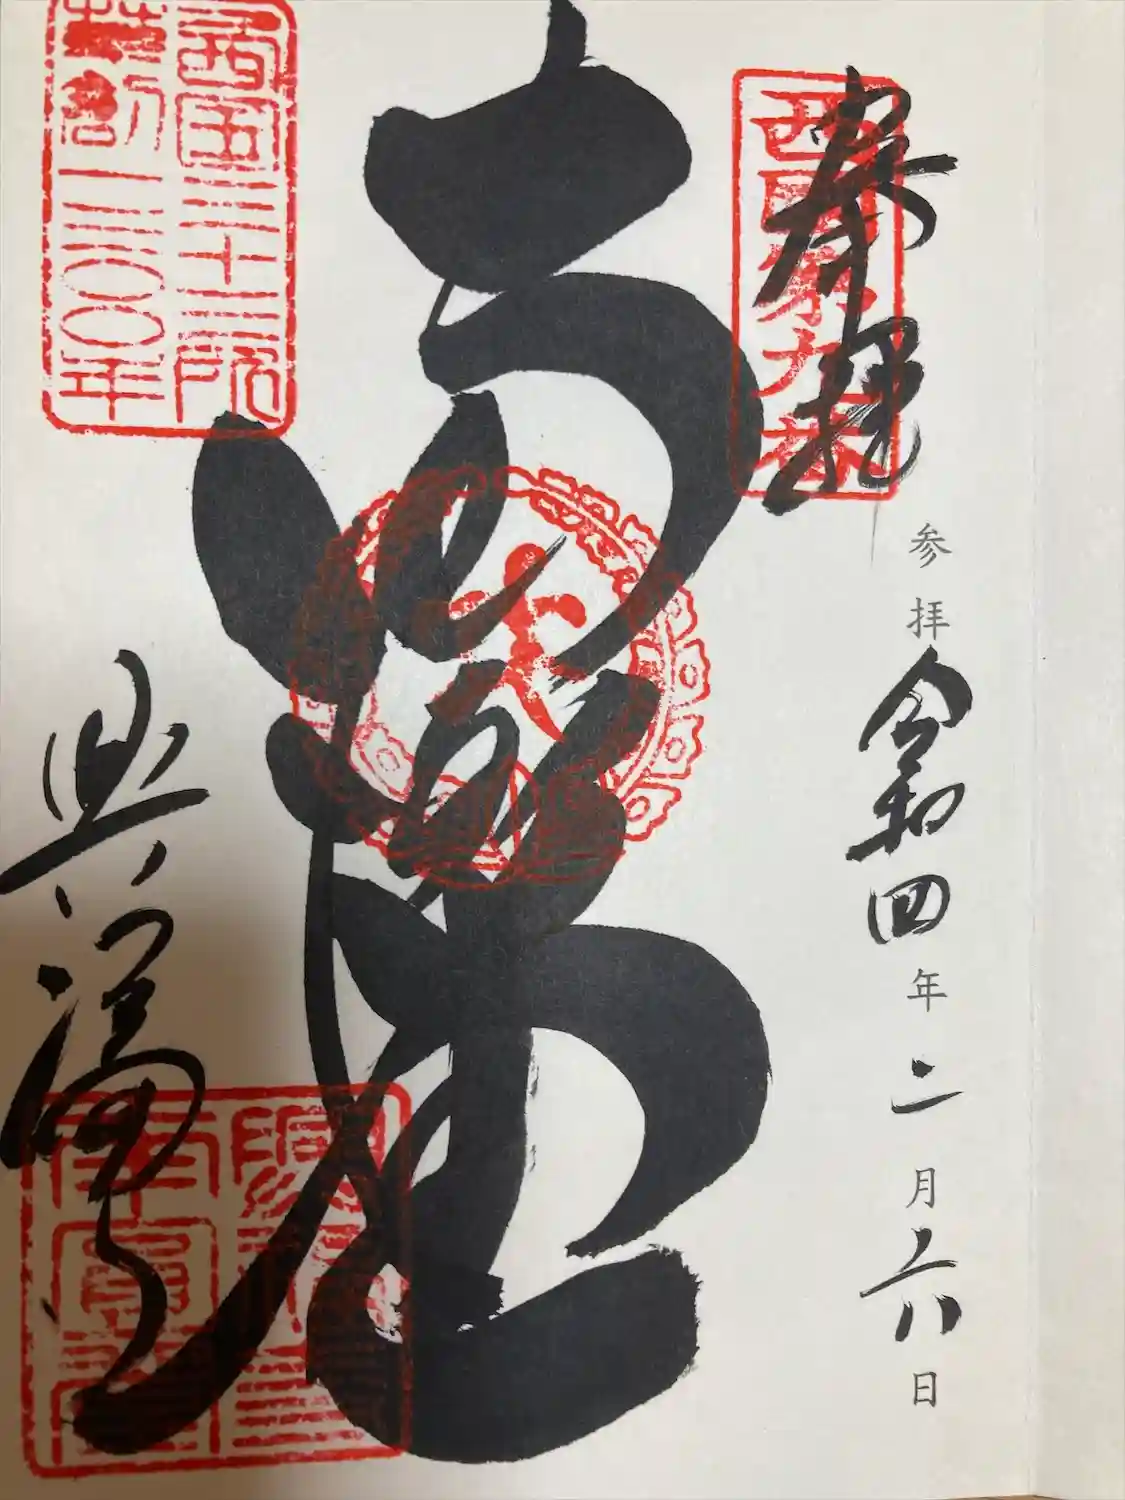 奉拝
西国第九番
参拝
令和四年二月六日
南圓堂
西国三十三所
草創一三〇〇年
興福寺